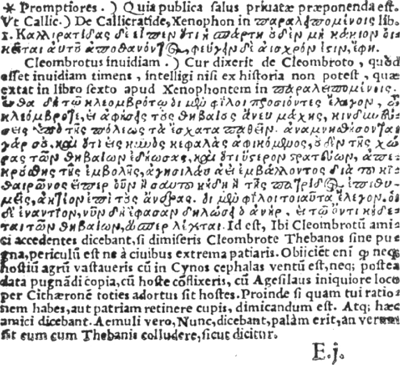 * Promptiores.) Quia publica salus priuatæ præponenda est.
Vt Callic.) De Callicratide, Xenophon in παραλειπομένοις lib.
1. Καλλικρατίδας δὲ εἶπεν ὅτι ἡ σπάρτη ὀυδὲν μὴ κάκιον
αὐτοῦ ἀποθανόντος, φεύγειν δὲ αἰσχρὸν
Cleombrotus inuidiam.) Cur dixerit de Cleombroto, quòd
esset inuidiam timens, intelligi nisi ex historia non potest, quæ
extat in libro sexto apud Xenophontem in παραλειπομένοις.
δὴ τῷ κλεομβρότῳ οἱ μὲν φίλοι προσιόντες ἔλεγον, ὦ
κλεόμβροτε, εἰ ἀφήσεις τοὺς θηβαίους ἄνευ μάχης, κινδυνεύ-
σεις ὑπὸ τῆς πόλεως τὰ ἔσχατα παθεῖν. ἀναμνησθήσονται
γάρ σου, καὶ ὅτι εἰς κυνὸς κεφαλὰς ἀφικόμενος, οὐδὲν τῆς χώ-
ρας τῶν θηβαίων ἐδῄωσας, καὶ ὅτι ὕστερον στρατεύων, ἀπε-
κρούσθης τῆς ἐμβολῆς, ἀγησιλάου ἀεὶ ἐμβάλλοντος διὰ τοῦ κι-
θαιρῶνος εἴπερ οὖν ἢ σαυτοῦ κήδῃ ἢ τῆς πατρίδος ἐπιθυ-
μεῖς, ἀκτέον ἐπὶ τοὺς ἄνδρας. οἱ μὲν φίλοι τοιαῦτα ἔλεγον. οἱ
δὲ ἐναντίοι, νῦν δὴ ἔφασαν δηλώσει ὁ ἀνὴρ, εἰ τῷ ὄντι κήδε-
ται τῶν θηβαίων, ὥσπερ λέγεται. Id est, Ibi Cleombrotū ami-
ci accedentes dicebant, si dimiseris Cleombrote Thebanos sine pu-
gna, periculū est ne à ciuibus extrema patiaris. Obiiciēt eni
hostiū agrū vastaueris cū in Cynos cephalas ventū est, neq; postea
data pugnādi copia, cū hoste cōflixeris, cū Agesilaus iniquiore loco
per Cithæronē toties adortus sit hostes. Proinde si quam tui ratio
nem habes, aut patriam retinere cupis, dimicandum est. Atq; hæc
amici dicebant. Aemuli vero, Nunc, dicebant, palàm erit, an verum
sit eum cum Thebanis colludere, sicut dicitur.
E.j.